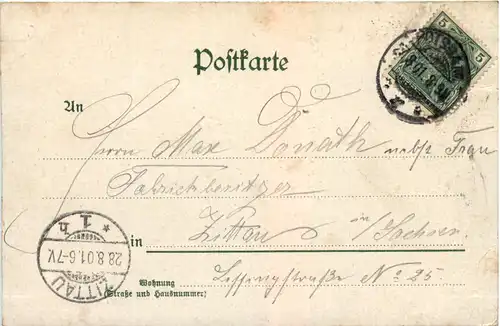 Postkarte
5 5
POTSDAM
An
Herrn Max Donath nebst Frau
Fabrickbesitzer
in Zittau in/Sachsen
Wohnung
(Straße und Hausnummer)
Lessingstraße No 25
ZITTAU
28.8.01.6-7V.
* 1 h